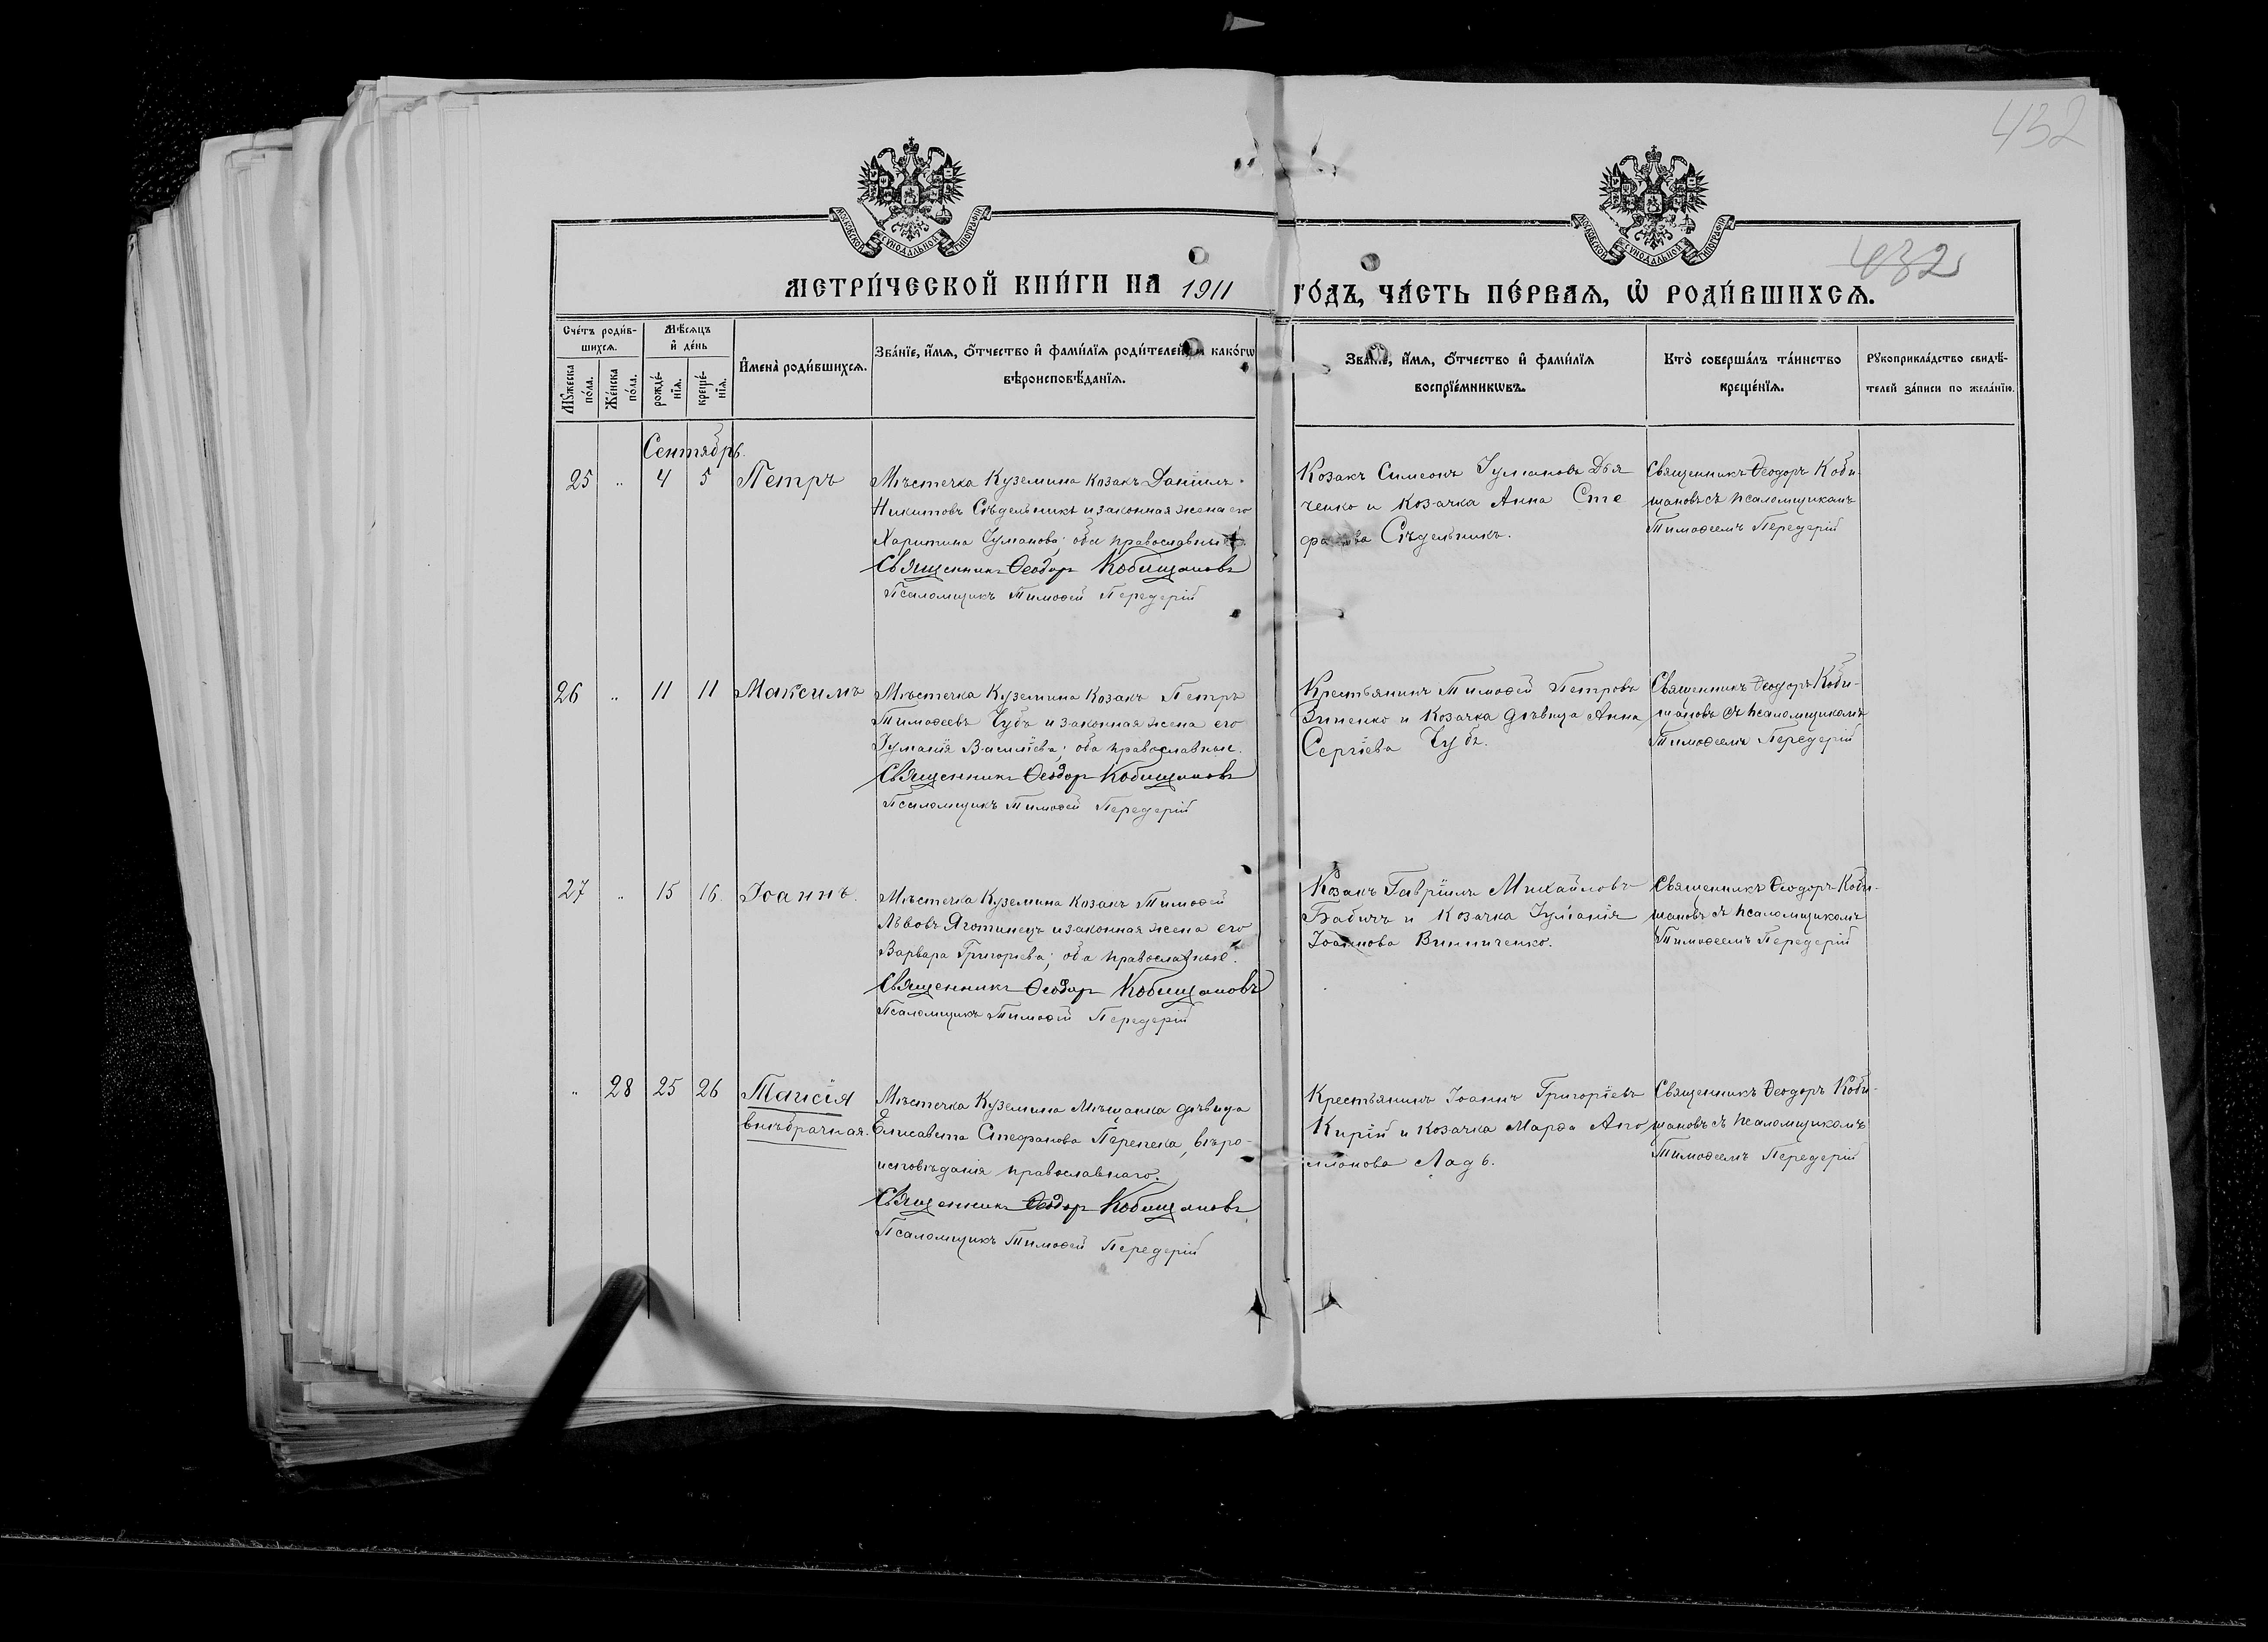 432
МОСКОВСКОЙ СУНОДАЛЬНОЙ ТИПОГРАФІИ
МОСКОВСКОЙ СУНОДАЛЬНОЙ ТИПОГРАФІИ
432
МЕТРИ́ЧЕСКОЙ КНИ́ГИ НА 1911 ГО́ДЪ, ЧА́СТЬ ПЕ́РВАѦ, Ѡ РОДИ́ВШИХСѦ.
Сче́тъ роди́в-
шихсѧ.
Мѣ́сѧцъ
и де́нь
Мꙋ́жеска по́ла.
Же́нска по́ла.
рожде́-
нїѧ.
креще́-
нїѧ.
Имена̀ роди́вшихсѧ.
Зва́нїе, и́мѧ, о́тчество и фами́лїѧ роди́телей, и како́гѡ
вѣроисповѣ́данїѧ.
Зва́нїе, и́мѧ, о́тчество и фами́лїѧ
воспрїе́мникѡвъ.
Кто̀ соверша́лъ та́инство
креще́нїѧ.
Рꙋкоприкла́дство свидѣ́-
телей за́писи по жела́нїю.
Сентябрь.
25 „ 4 5 Петръ
Мѣстечка Куземина козакъ Даніилъ
Никитовъ Сѣдельникъ и законная жена его
Харитина Гуманова; оба православные
Священникъ Ѳеодоръ Кобищановъ
Псаломщикъ Тимоѳей Передерій
Козакъ Симеонъ Дья
ченко и козачка Анна Сте
фанова Сѣдельникъ.
Священникъ Ѳеодоръ Коби-
щановъ съ псаломщикомъ
Тимоѳеемъ Передерій
26 „ 11 11 Максимъ
Мѣстечка Куземина козакъ Петръ
Тимоѳеевъ Чубъ и законная жена его
Іуліанія Василіева; оба православные.
Священникъ Ѳеодоръ Кобищановъ
Псаломщикъ Тимоѳей Передерій
Крестьянинъ Тимоѳей Петровъ
Зиненко и козачка дѣвица Анна
Сергіева Чубъ.
Священникъ Ѳеодоръ Коби-
щановъ съ псаломщикомъ
Тимоѳеемъ Передерій
27 „ 15 16. Іоаннъ.
Мѣстечка Куземина козакъ Тимоѳей
Львовъ Яготинецъ и законная жена его
Варвара Григоріева; оба православные.
Священникъ Ѳеодоръ Кобищановъ
Псаломщикъ Тимоѳей Передерій
Козакъ Гавріилъ Михайловъ
Бабичъ и козачка Іуліанія
Іоаннова Винниченко.
Священникъ Ѳеодоръ Коби-
щановъ съ псаломщикомъ
Тимоѳеемъ Передерій
„ 28 25 26 Таисія
внѣбрачная.
Мѣстечка Куземина мѣщанка дѣвица
Елисавета Стефанова Перепека, вѣро-
исповѣданія православнаго.
Священникъ Ѳеодоръ Кобищановъ
Псаломщикъ Тимоѳей Передерій
Крестьянинъ Іоаннъ Григоріевъ
Кирій и козачка Марѳа Апо
ллонова Ладъ.
Священникъ Ѳеодоръ Коби-
щановъ съ псаломщикомъ
Тимоѳеемъ Передерій